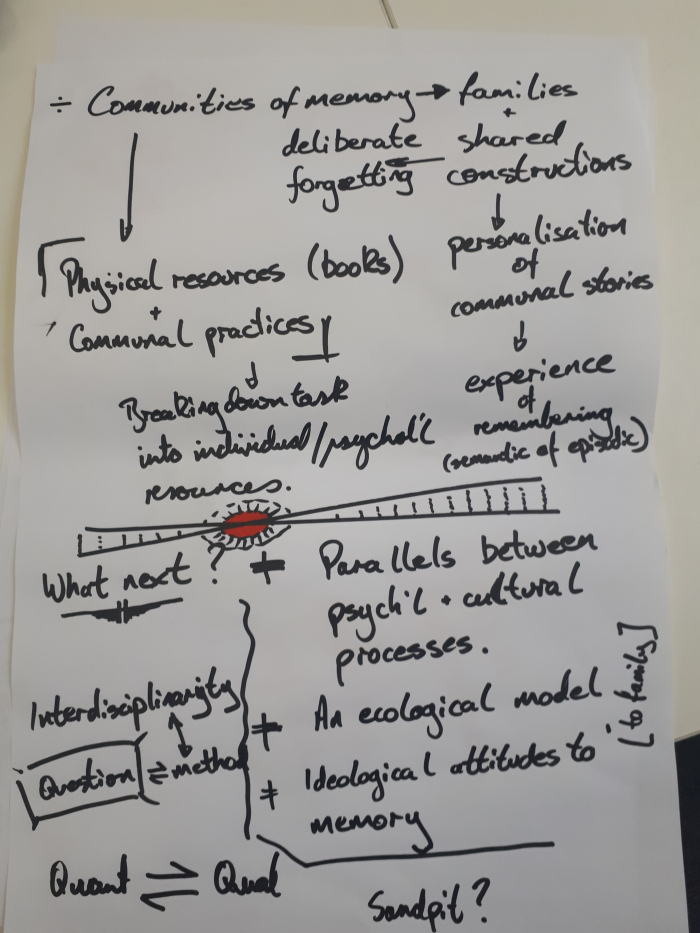 ÷ Communities of memory → families
+
deliberate ← shared
forgetting constructions
↓
personalisation
of
communal stories
↓
experience
of
remembering
(semantic of episodic)
↓
Physical resources (books)
+
Communal practices
↓
Breaking down task
into individual/psychol'c
resources.
What next?
+ Parallels between
psych'l + cultural
processes.
+ An ecological model
+ Ideological attitudes to
memory
[to family]
Interdisciplinarity
Question ⇌ method
Quant ⇌ Qual
Sandpit?